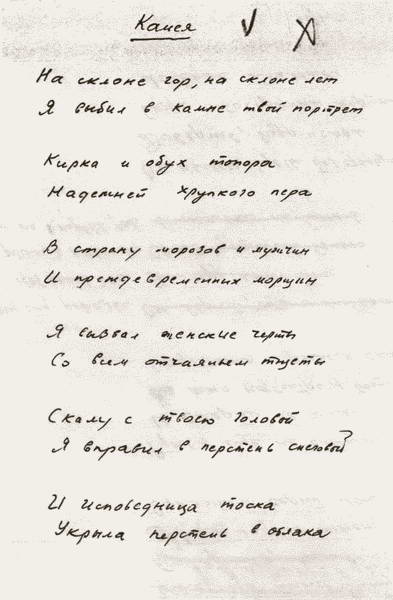 Камея V
На склоне гор, на склоне лет
Я выбил в камне твой портрет
Кирка и обух топора
Надежней хрупкого пера
В страну морозов и мужчин
И преждевременных морщин
Я вызвал женские черты
Со всем отчаяньем тщеты
Скалу с твоею головой
Я вправил в перстень снеговой
И исповедница тоска
Укрыла перстень в облака